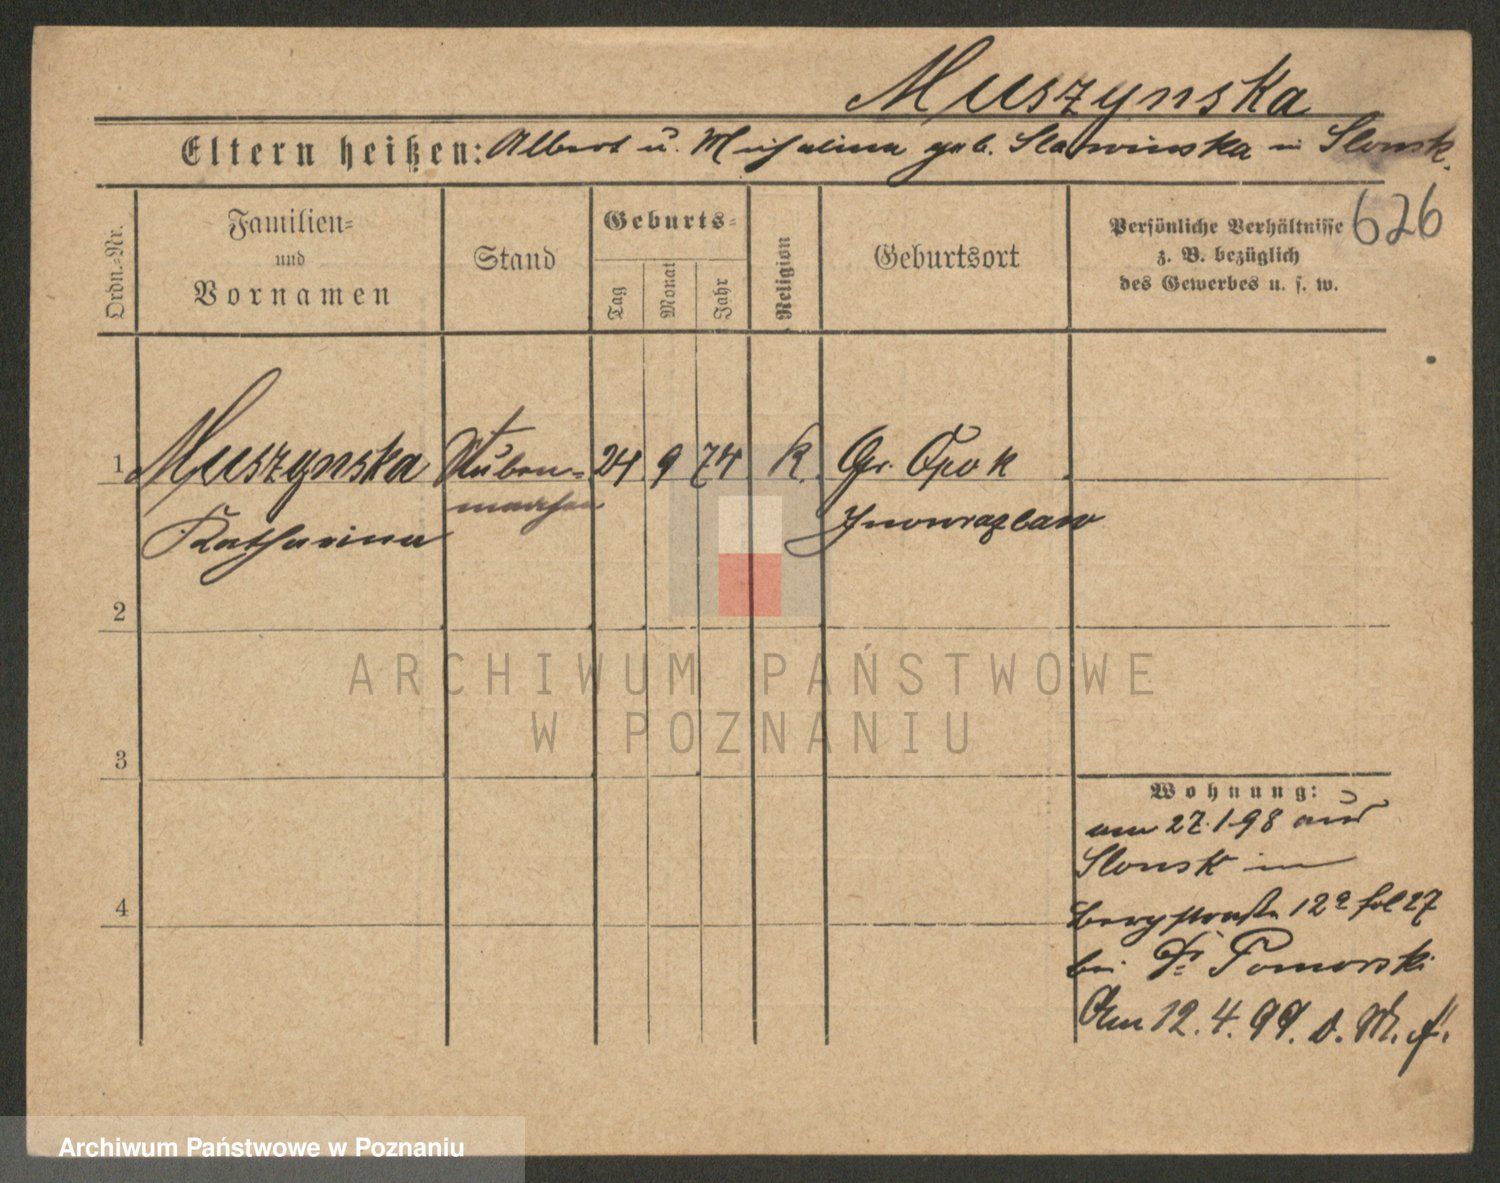 Muszynska
Eltern heißen: Albert u. Michalina geb. Slawinska in Slonsk.
626
Ordn.-Nr.
Familien- und Vornamen
Stand
Geburts-
Tag
Monat
Jahr
Religion
Geburtsort
Persönliche Verhältnisse
z. B. bezüglich
des Gewerbes u. s. w.
1 Muszynska Stuben- 24 9 74 K. Gr. Opok
mädchen
Katharina Inowrazlaw
2
3
4
Wohnung:
am 27.1.98 aus
Slonsk in
Bergstraße 12a fol 27
bei Dr. Pomorski
Am 12.4.99. d. M.
ARCHIWUM PAŃSTWOWE
W POZNANIU
Archiwum Państwowe w Poznaniu